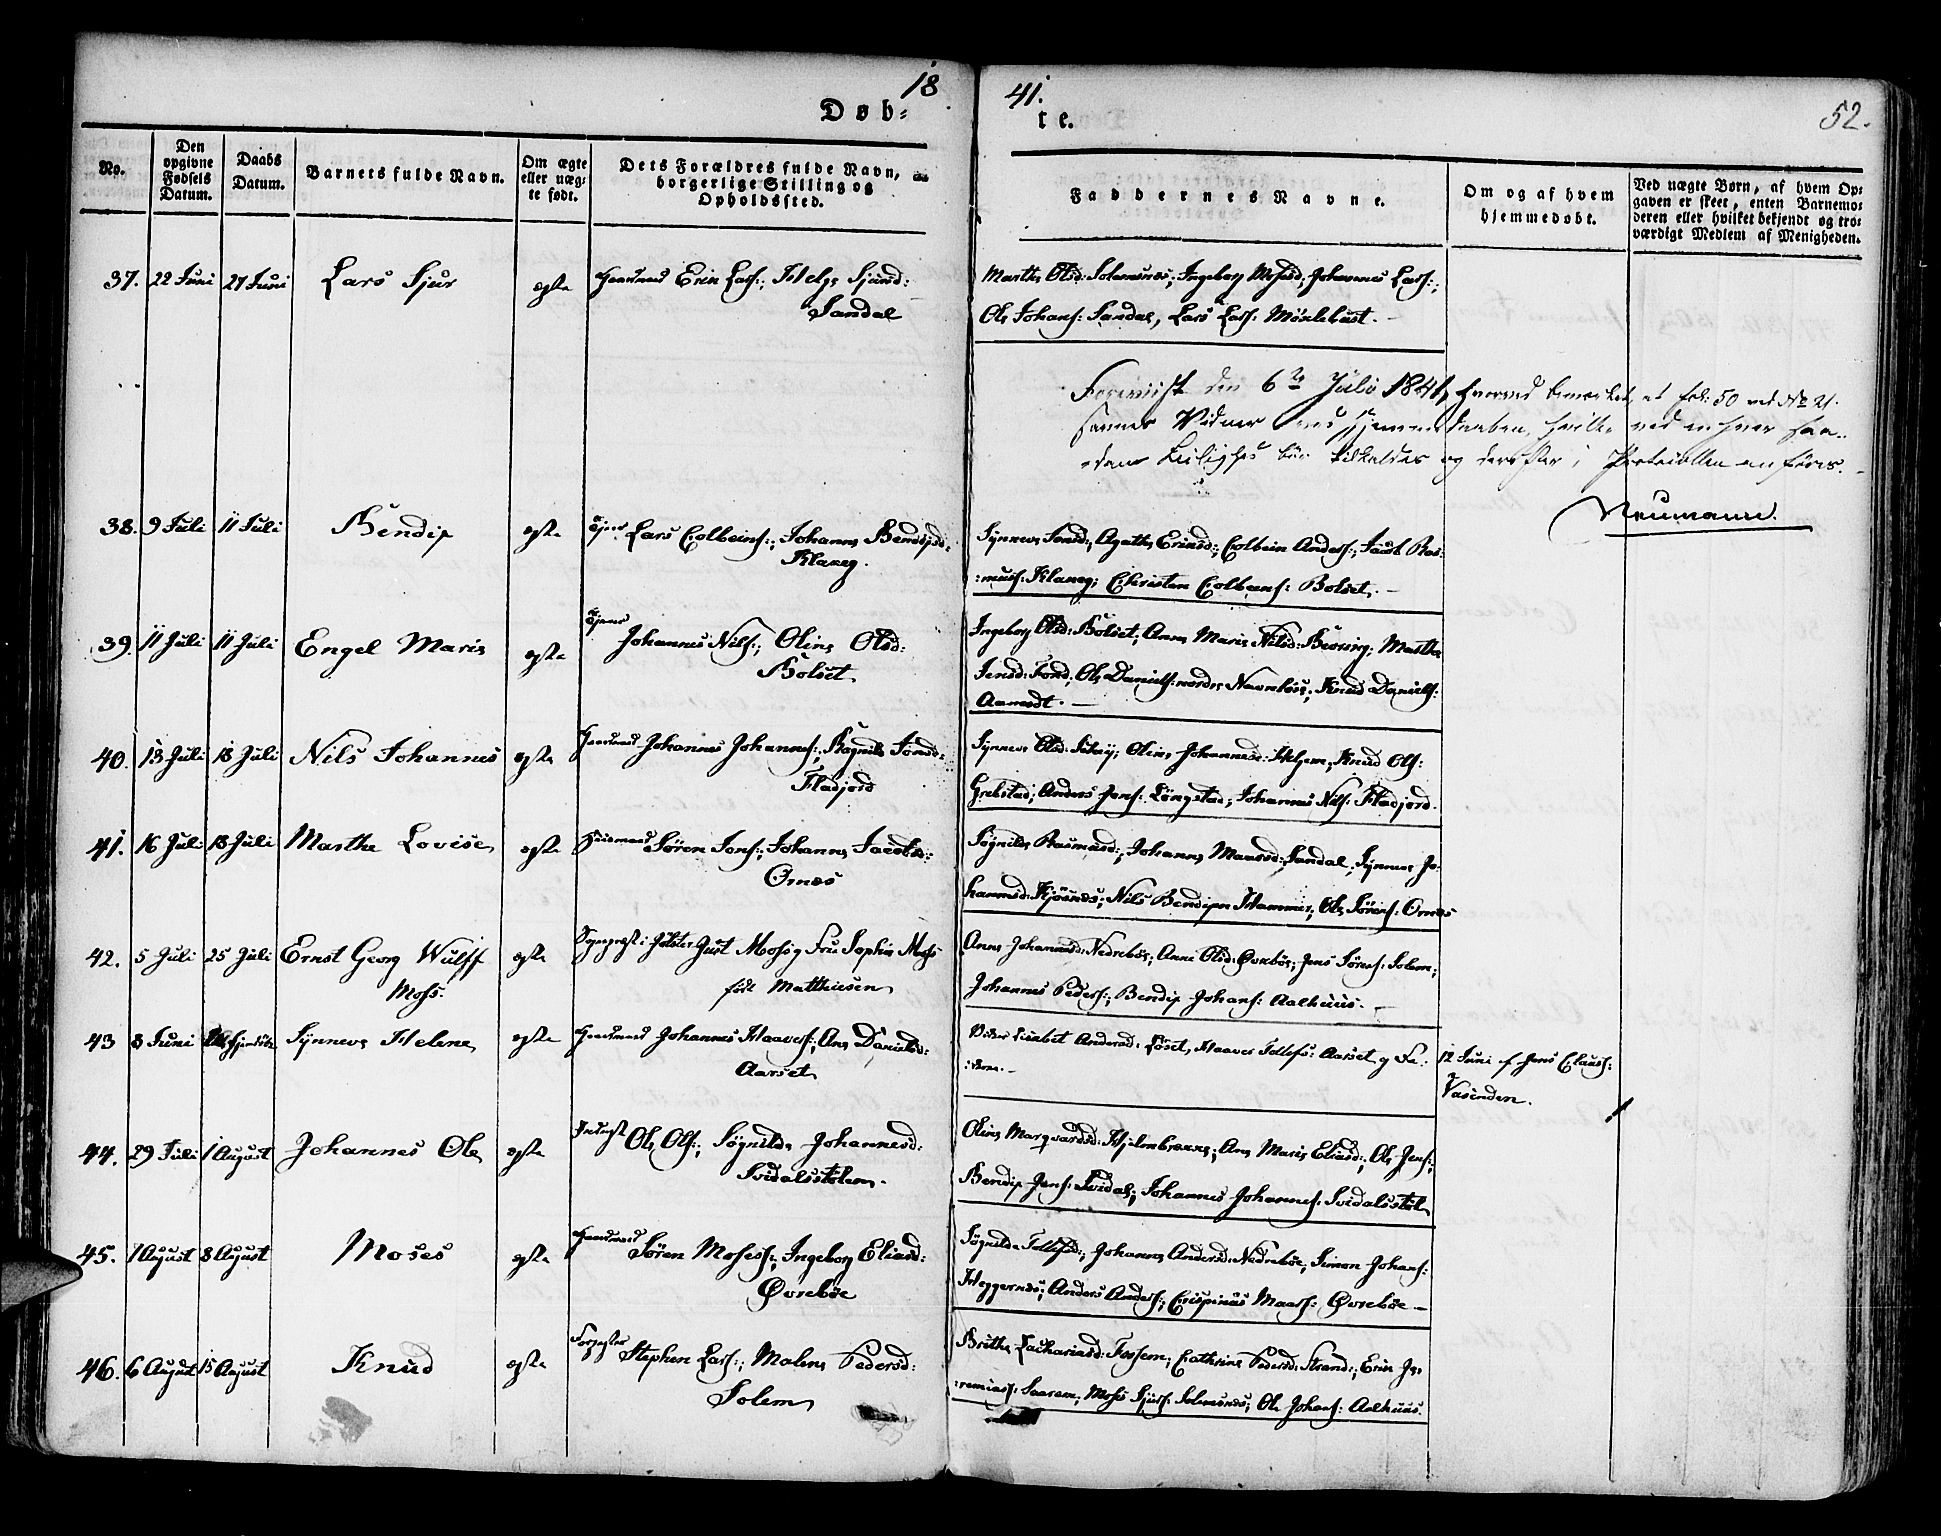 18
41.
52.
Døb-
te.
No.
Den opgivne Fødsels Datum.
Daabs Datum.
Barnets fulde Navn.
Om ægte eller uægte født.
Dets Forældres fulde Navn, borgerlige Stilling og Opholdssted.
Faddernes Navne.
Om og af hvem hjemmedøbt.
Ved uægte Børn, af hvem Opgaven er skeet, enten Barnemoderen eller hvilket bekjendt og troværdigt Medlem af Menigheden.
37. 22 Juni 27 Juni Lars Sjur ægte Huusmand Erik Lars:, Helge Sjursd:
Sandal
Marthe Olsd: Solemsnes; Ingeborg Mosesd; Johannes Lars:;
Ole Johans: Sandal, Lars Lars: Möslebust.
Foreviist den 6te Julii 1841, hvorved bemærkes, at fol: 50 ved No 21.
savnes Vidner ved Hjemmedaaben, hvilke ved enhver saa-
dan Leilighed bör tilkaldes og derefter i Protocollen anføres.
Neumann.
38. 9 Juli 11 Juli Bendix ægte Lars Colbeins:, Johanne Bendixd:
Klaneg.
Synneve Jensd:, Agathe Eriksd:, Colbein Anders:, Jacob Ras-
:mus: Klaneg; Christen Colbeins: Bolset.
39. 11 Juli 11 Juli Engel Marie ægte Johannes Nils:, Oline Olsd:
Bolset
Ingeborg Olsd: Bolset; Anne Marie Nilsd: Bævring; Marthe
Jensd: Fond; Ole Daniels: Navreböe; Knud Daniels:
Aamodt.
40. 13 Juli 18 Juli Nils Johannes ægte Huusmand Johannes Johannes:, Ragnilde Jonsd:
Fladjord
Synneve Olsd: ; Oline Johannesd: Helgem; Knud Ols:
Grebstad; Anders Jens: Löngstad; Johannes Nils: Fladjord.
41. 16 Juli 18 Juli Marthe Lovise ægte Huusmand Sören Jens:, Johanne Jacobsd:
Ornes
Sögnilde Rasmusd:, Johanne Maasd: Sandal; Synneve Jo-
hannesd: Kjösnes; Nils Bendixen Hammer; Ole Sörens: Ornes
42. 5 Juli 25 Juli Ernst Georg Wulff
Mohs. ægte Sognepræst i Jölster Just Mohs og Fru Sophie Mohs
født Matthiesen
Anne Johannesd: Nedreböe; Anne Olsd: Øvreböe; Jens Sörens: Solem;
Johannes Peders:; Bendix Johans: Aalhuus.
43 8 Juni Synneve Helene ægte Huusmand Johannes Haavers:, Ane Danielsd:
Aarset
Lisabet Andersd: Löset, Haaver Tollefs: Aarset og Fa-
:deren.
12 Juni af Jens Claus:
Vasenden.
44. 29 Juli 1 August Johannes Ole ægte Ole Ols:, Sögnilde Johannesd:
Svidalsstölen.
Oline Marqvardsd: Hjelmbrekke; Ane Marie Eliasd:, Ole Jens:,
Bendix Jens: Svidal; Johannes Johannes: Svidalsstöl
45. 1 August 8 August Moses ægte Huusmand Sören Moses:, Ingeborg Eliasd:
Øvreböe
Sögnilde Tollefsd:, Johanne Andersd: Nedreböe, Simon Johans:
Heggernes; Anders Anders:, Crispinus Maas: Øvreböe
46. 6 August 15 August Knud ægte Forpagter Stephen Lars:, Malene Pedersd:
Solem
Brithe Zachariasd: Fossem; Cathrine Pedersd: Strand:, Erik Je-
:remias: ; Moses Sjurs: Solemsnes; Ole Johans: Aalhuus.